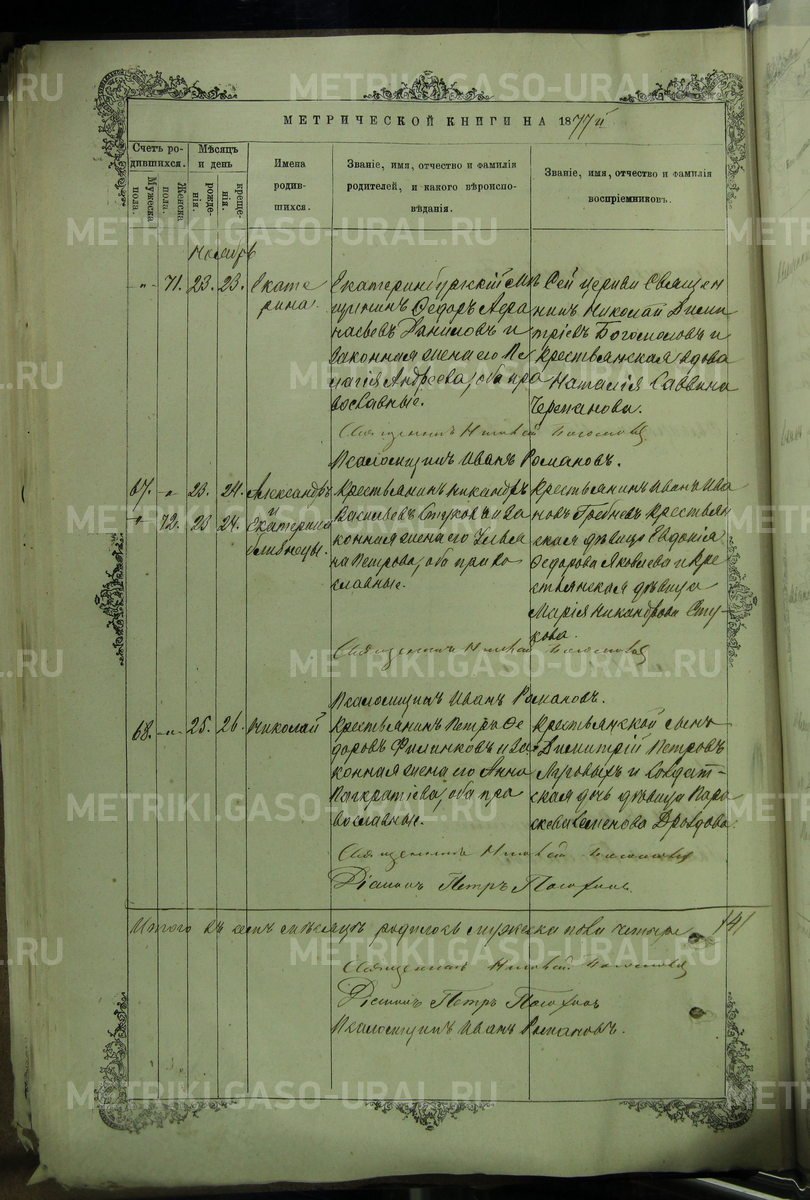 METRIKI.GASO-URAL.RU
МЕТРИЧЕСКОЙ КНИГИ НА 1877й
Счетъ ро-
дившихся.
Мужеска пола.
Женска пола.
Мѣсяцъ
и день
рожде-
нія.
креще-
нія.
Имена
родив-
шихся.
Званіе, имя, отчество и фамилія
родителей, и какого вѣроиспо-
вѣданія.
Званіе, имя, отчество и фамилія
воспріемниковъ.
Ноябрь
" 71. 23. 23.
Екате
рина.
Екатеринбургскій мѣ
щанинъ Ѳедоръ Аѳа
насьевъ Даниловъ и
законная жена его Пе
лагія Андреева, оба пра
вославные.
Сей церкви Священ
никъ Николай Дими
тріевъ Богомоловъ и
крестьянская вдова
Наталія Саввина
Священникъ Николай
Псаломщикъ Иванъ Романовъ.
67. " 23. 24. Александръ
и
" 72. 23 24. Екатерина
близнецы.
Крестьянинъ Никандръ
Васильевъ Стуковъ и за
конная жена его Улья
на Петрова, оба право
славные.
Крестьянинъ Иванъ Ива
новъ Гребневъ крестьян
ская дѣвица Евдокія
Ѳедорова Яковлева и кре
стьянская дѣвица
Марія Никандрова Сту-
кова.
Священникъ Николай
Псаломщикъ Иванъ Романовъ.
68. " 25. 26. Николай
Крестьянинъ Петръ Ѳе
доровъ Филинковъ и за
конная жена его Анна
Панкратіева, оба пра
вославные.
Крестьянской сынъ
Димитрій Петровъ
Луговыхъ и Солдат-
ская дочь дѣвица Пара
скева Семенова Дроздова.
Священникъ Николай
Діаконъ Петръ
Итого въ семъ мѣсяцѣ родилось мужеска пола четыре /4/
Священникъ Николай
Діаконъ Петръ
Псаломщикъ Иванъ Романовъ.